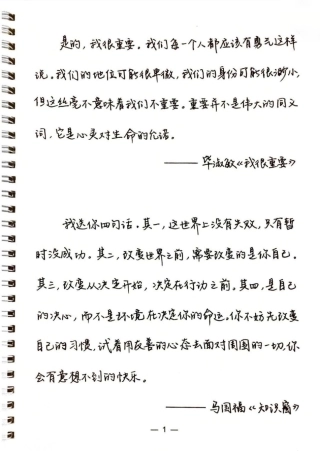 是的，我很重要。我们每一个人都应该有勇气这样
说。我们的地位可能很卑微，我们的身份可能很渺小，
但这丝毫不意味着我们不重要。重要并不是伟大的同义
词，它是心灵对生命的允诺。
——毕淑敏《我很重要》
我送你四句话。其一，这世界上没有失败，只有暂
时没成功。其二，改变世界之前，需要改变的是你自己。
其三，改变从决定开始，决定在行动之前。其四，是自己
的决心，而不是环境在决定你的命运。你不妨先改变
自己的习惯，试着用友善的心态去面对周围的一切，你
会有意想不到的快乐。
——马国福《知识窗》
— 1 —